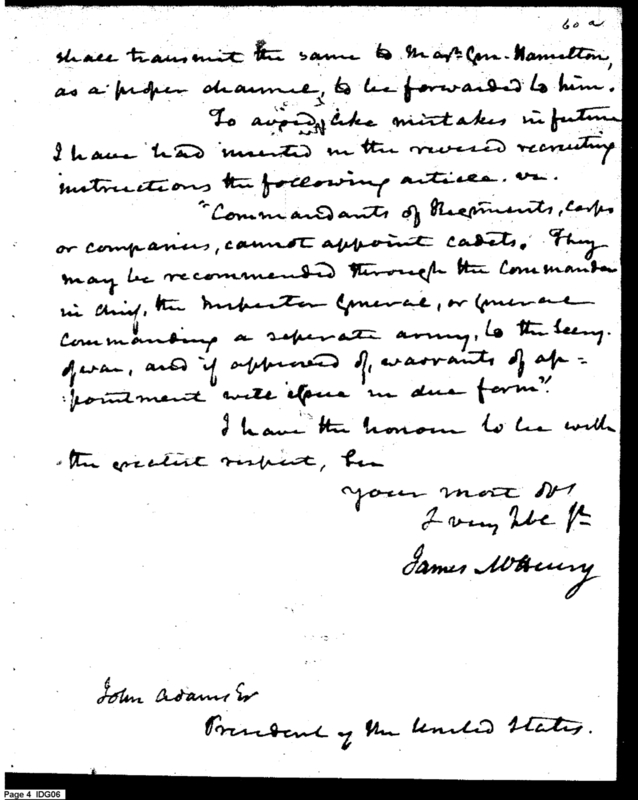 60 a
shall transmit the same to Majr. Gen. Hamilton,
as a proper channel, to be forwarded to him.
To avoid like mistakes in future
I have had inserted in the revised recruiting
instructions the following article. viz.
"Commandants of Regiments, corps
or companies, cannot appoint cadets. They
may be recommended through the Commander
in chief, the Inspector General, or general
commanding a seperate army, to the Secry.
of war, and if approved of, warrants of ap=
=pointment will issue in due form".
I have the honour to be with
the greatest respect, Sir
your most Obt
& very hble St
James McHenry
John Adams Esr
President of the United States.
Page 4 IDG06